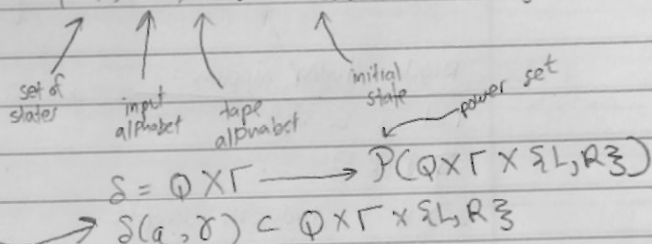 set of states
input alphabet
tape alphabet
initial state
power set
δ = Q×Γ ⟶ P(Q×Γ×{L,R})
δ(q,γ) ⊂ Q×Γ×{L,R}